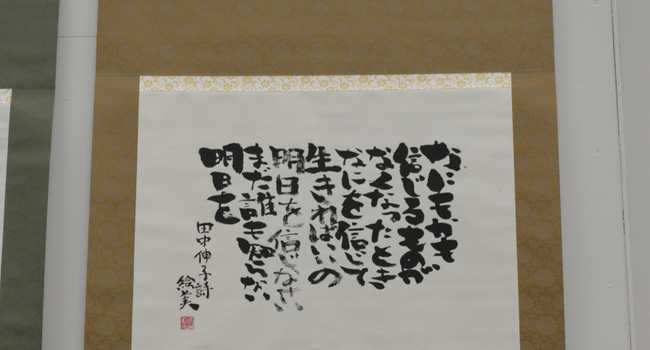 なにもかも
信じるものが
なくなったとき
なにを信じて
生きればいいの
明日を信じなさい
まだ誰も知らない
明日を
田中伸子詩
絵美